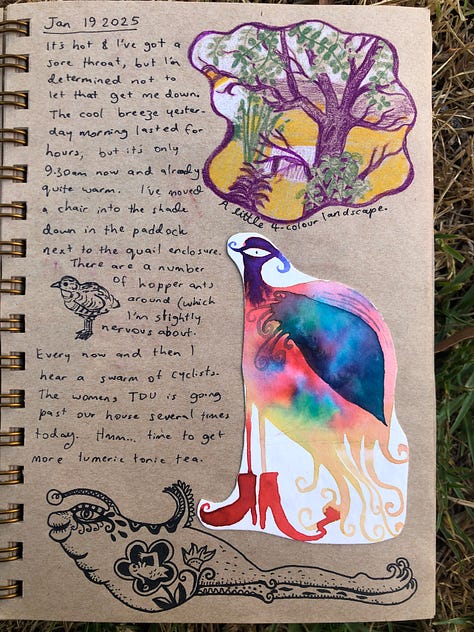 Jan 19 2025
It's hot & I've got a
sore throat, but I'm
determined not to
let that get me down.
The cool breeze yester-
day morning lasted for
hours, but it's only
9.30am now and already
quite warm. I've moved
a chair into the shade
down in the paddock
next to the quail enclosure.
There are a number
of hopper ants
around (which
I'm slightly
nervous about.
Every now and then I
hear a swarm of cyclists.
The womens TDU is going
past our house several times
today. Hmm... time to get
more tumeric tonic tea.
A little 4-colour landscape.